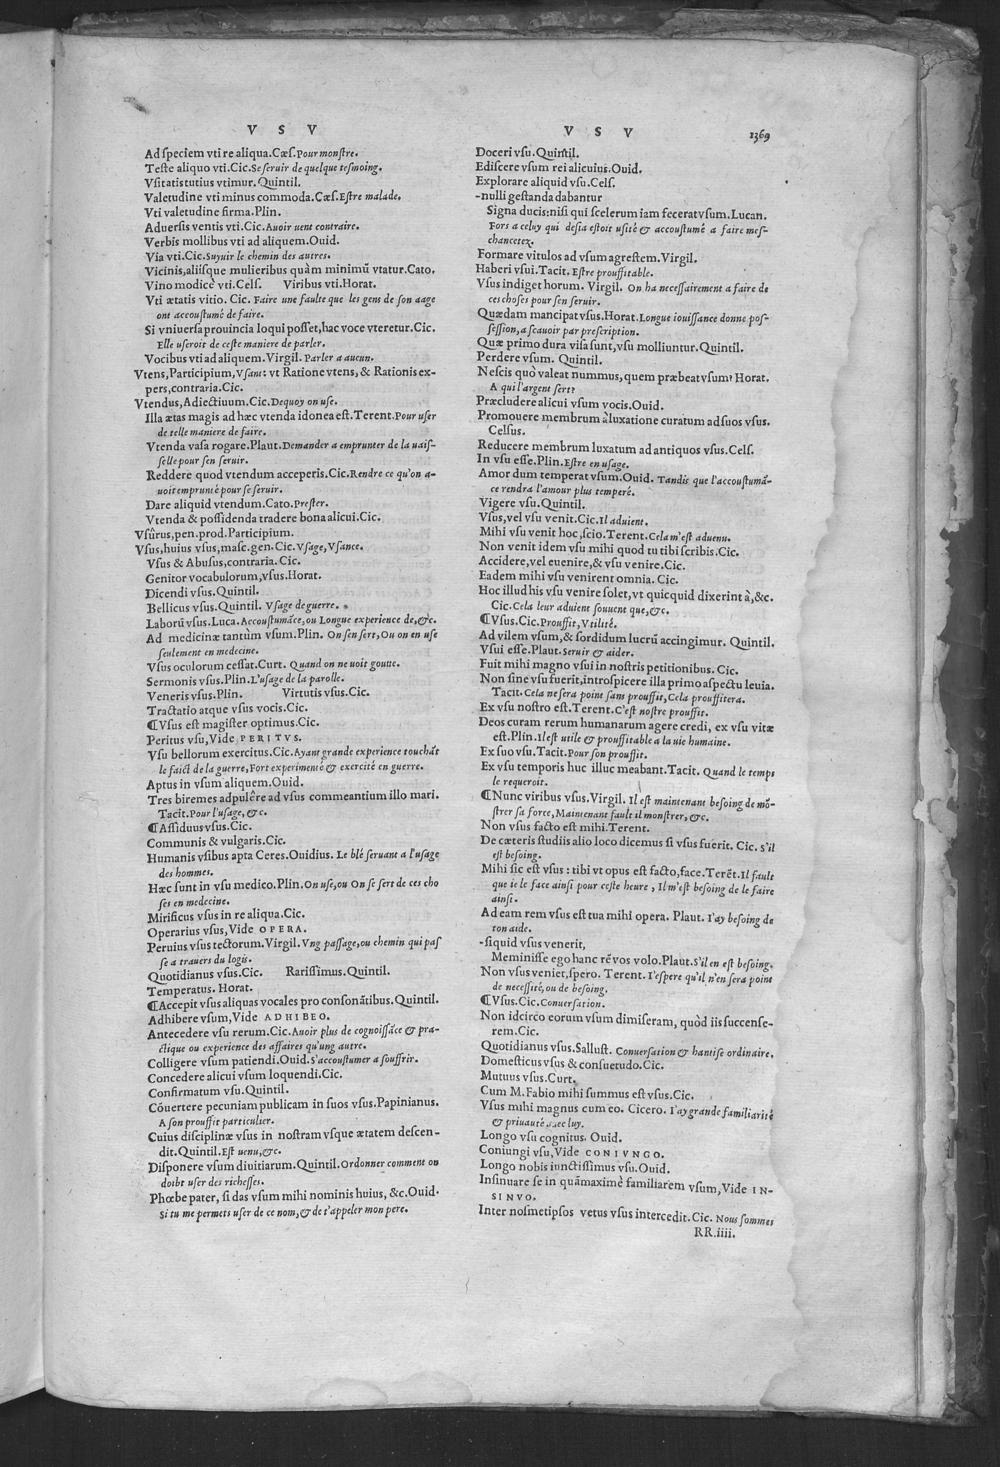 V S V
Ad speciem vti re aliqua.Cæs.Pour monstre.
Teste aliquo vti.Cic.Se seruir de quelque tesmoing.
Vsitatis tutius vtimur. Quintil.
Valetudine vti minus commoda.Cæs.Estre malade.
Vti valetudine firma.Plin.
Aduersis ventis vti.Cic.Auoir uent contraire.
Verbis mollibus vti ad aliquem.Ouid.
Via vti.Cic.Suyuir le chemin des autres.
Vicinis,aliisque mulieribus quàm minimũ vtatur.Cato.
Vino modicè vti.Cels. Viribus vti.Horat.
Vti ætatis vitio. Cic. Faire une faulte que les gens de son aage
ont accoustumé de faire.
Si vniuersa prouincia loqui posset,hac voce vteretur.Cic.
Elle useroit de ceste maniere de parler.
Vocibus vti ad aliquem.Virgil.Parler a aucun.
Vtens,Participium,Vsant: vt Ratione vtens, & Rationis ex-
pers,contraria.Cic.
Vtendus,Adiectiuum.Cic.Dequoy on use.
Illa ætas magis ad hæc vtenda idonea est.Terent.Pour user
de telle maniere de faire.
Vtenda vasa rogare.Plaut.Demander a emprunter de la uais-
selle pour sen seruir.
Reddere quod vtendum acceperis.Cic.Rendre ce qu'on a-
uoit emprunté pour se seruir.
Dare aliquid vtendum.Cato.Prester.
Vtenda & possidenda tradere bona alicui.Cic.
Vsûrus,pen.prod.Participium.
Vsus,huius vsus,masc.gen.Cic.Vsage,Vsance.
Vsus & Abusus,contraria. Cic.
Genitor vocabulorum,vsus.Horat.
Dicendi vsus.Quintil.
Bellicus vsus.Quintil. Vsage de guerre.
Laborũ vsus.Luca.Accoustumãce,ou Longue experience de,&c.
Ad medicinæ tantùm vsum.Plin. On sen sert,Ou on en use
seulement en medecine.
Vsus oculorum cessat.Curt. Quand on ne uoit goutte.
Sermonis vsus.Plin.L'usage de la parolle.
Veneris vsus.Plin. Virtutis vsus.Cic.
Tractatio atque vsus vocis.Cic.
¶Vsus est magister optimus.Cic.
Peritus vsu,Vide PERITVS.
Vsu bellorum exercitus.Cic.Ayant grande experience touchãt
le faict de la guerre,Fort experimenté & exercité en guerre.
Aptus in vsum aliquem.Ouid.
Tres biremes adpulêre ad vsus commeantium illo mari.
Tacit.Pour l'usage,&c.
¶Assiduus vsus.Cic.
Communis & vulgaris.Cic.
Humanis vsibus apta Ceres.Ouidius. Le blé seruant a l'usage
des hommes.
Hæc sunt in vsu medico.Plin.On use,ou On se sert de ces cho
ses en medecine.
Mirificus vsus in re aliqua.Cic.
Operarius vsus,Vide OPERA.
Peruius vsus tectorum.Virgil. Vng passage,ou chemin qui pas
se a trauers du logis.
Quotidianus vsus.Cic. Rarissimus.Quintil.
Temperatus. Horat.
¶Accepit vsus aliquas vocales pro consonãtibus.Quintil.
Adhibere vsum,Vide ADHIBEO.
Antecedere vsu rerum.Cic.Auoir plus de cognoissãce & pra-
ctique ou experience des affaires qu'ung autre.
Colligere vsum patiendi.Ouid.S'accoustumer a souffrir.
Concedere alicui vsum loquendi.Cic.
Confirmatum vsu.Quintil.
Cõuertere pecuniam publicam in suos vsus.Papinianus.
A son prouffit particulier.
Cuius disciplinæ vsus in nostram vsque ætatem descen-
dit.Quintil.Est uenu,&c.
Disponere vsum diuitiarum.Quintil.Ordonner comment on
doibt user des richesses.
Phœbe pater, si das vsum mihi nominis huius, &c.Ouid.
Si tu me permets user de ce nom,& de t'appeler mon pere.
V S V
1369
Doceri vsu.Quintil.
Ediscere vsum rei alicuius.Ouid.
Explorare aliquid vsu.Cels.
-nulli gestanda dabantur
Signa ducis:nisi qui scelerum iam fecerat vsum.Lucan.
Fors a celuy qui desia estoit usité & accoustumé a faire mes-
chancetez.
Formare vitulos ad vsum agrestem.Virgil.
Haberi vsui.Tacit.Estre prouffitable.
Vsus indiget horum. Virgil. On ha necessairement a faire de
ces choses pour sen seruir.
Quædam mancipat vsus.Horat.Longue iouissance donne pos-
session,a scauoir par prescription.
Quæ primo dura visa sunt,vsu molliuntur.Quintil.
Perdere vsum. Quintil.
Nescis quò valeat nummus,quem præbeat vsum? Horat.
A qui l'argent sert?
Præcludere alicui vsum vocis.Ouid.
Promouere membrum à luxatione curatum ad suos vsus.
Celsus.
Reducere membrum luxatum ad antiquos vsus.Cels.
In vsu esse.Plin.Estre en usage.
Amor dum temperat vsum.Ouid. Tandis que l'accoustumã-
ce rendra l'amour plus temperé.
Vigere vsu.Quintil.
Vsus,vel vsu venit.Cic.Il aduient.
Mihi vsu venit hoc,scio.Terent.Cela m'est aduenu.
Non venit idem vsu mihi quod tu tibi scribis.Cic.
Accidere,vel euenire,& vsu venire.Cic.
Eadem mihi vsu venirent omnia. Cic.
Hoc illud his vsu venire solet,vt quicquid dixerint à,&c.
Cic.Cela leur aduient souuent que,&c.
¶Vsus.Cic.Prouffit,Vtilité.
Ad vilem vsum,& sordidum lucrũ accingimur. Quintil.
Vsui esse.Plaut.Seruir & aider.
Fuit mihi magno vsui in nostris petitionibus. Cic.
Non sine vsu fuerit,introspicere illa primo aspectu leuia.
Tacit.Cela ne sera point sans prouffit,Cela prouffitera.
Ex vsu nostro est.Terent.C'est nostre prouffit.
Deos curam rerum humanarum agere credi, ex vsu vitæ
est.Plin.Il est utile & prouffitable a la uie humaine.
Ex suo vsu.Tacit.Pour son prouffit.
Ex vsu temporis huc illuc meabant.Tacit. Quand le temps
le requeroit.
¶Nunc viribus vsus.Virgil. Il est maintenant besoing de mõ-
strer sa force,Maintenant fault il monstrer,&c.
Non vsus facto est mihi.Terent.
De cæteris studiis alio loco dicemus si vsus fuerit. Cic. S'il
est besoing.
Mihi sic est vsus : tibi vt opus est facto,face.Terẽt.Il fault
que ie le face ainsi pour ceste heure , Il m'est besoing de le faire
ainsi.
Ad eam rem vsus est tua mihi opera. Plaut. I'ay besoing de
ton aide.
-siquid vsus venerit,
Meminisse ego hanc rẽ vos volo.Plaut.S'il en est besoing.
Non vsus veniet,spero. Terent. I'espere qu'il n'en sera point
de necessité,ou de besoing.
¶Vsus.Cic.Conuersation.
Non idcirco eorum vsum dimiseram, quòd iis succense-
rem.Cic.
Quotidianus vsus.Sallust. Conuersation & hantise ordinaire.
Domesticus vsus & consuetudo.Cic.
Mutuus vsus.Curt.
Cum M.Fabio mihi summus est vsus.Cic.
Vsus mihi magnus cum eo. Cicero. I'ay grande familiarité
& priuauté auec luy.
Longo vsu cognitus. Ouid.
Coniungi vsu,Vide CONIVNGO.
Longo nobis iunctissimus vsu.Ouid.
Insinuare se in quãmaximè familiarem vsum,Vide IN-
SINVO.
Inter nosmetipsos vetus vsus intercedit.Cic. Nous sommes
RR.iiii.